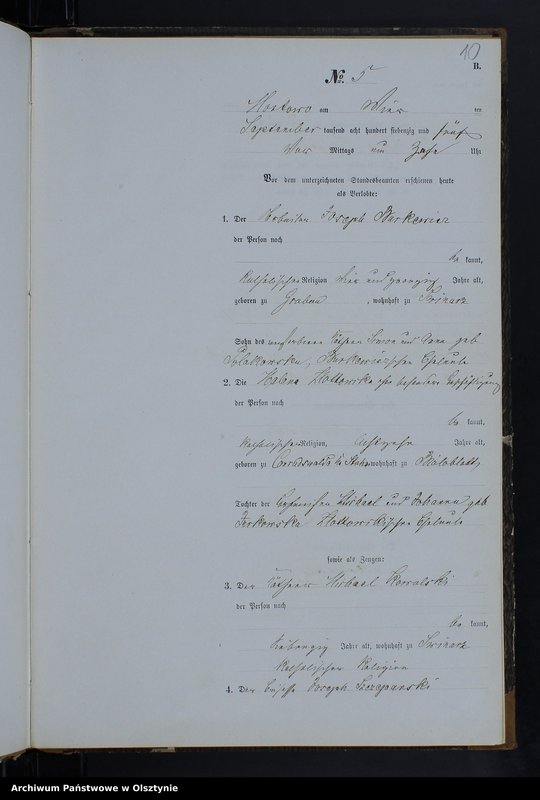 10
B.
No. 5
Mostowo am Vier ten
September tausend acht hundert siebenzig und fünf
Vor Mittags um Zehn Uhr
Vor dem unterzeichneten Standesbeamten erschienen heute
als Verlobte:
1. Der Arbeiter Joseph Burkewicz
der Person nach
be kannt,
katholischer Religion vier und zwanzig Jahre alt,
geboren zu Grabau, wohnhaft zu
Sohn des verstorbenen Simon und Anna geb
Burkewiczschen Eheleute
2. Die Helena ohne besondere Beschäftigung
der Person nach
be kannt,
katholischer Religion, Achtzehn Jahre alt,
geboren zu wohnhaft zu Bialoblott,
Tochter der Michael und Johanna geb
Eheleute
sowie als Zeugen:
3. Der Käthner Michael Kowalski
der Person nach
be kannt,
siebenzig Jahre alt, wohnhaft zu
katholischer Religion
4. Der Joseph Szczepanski
Archiwum Państwowe w Olsztynie